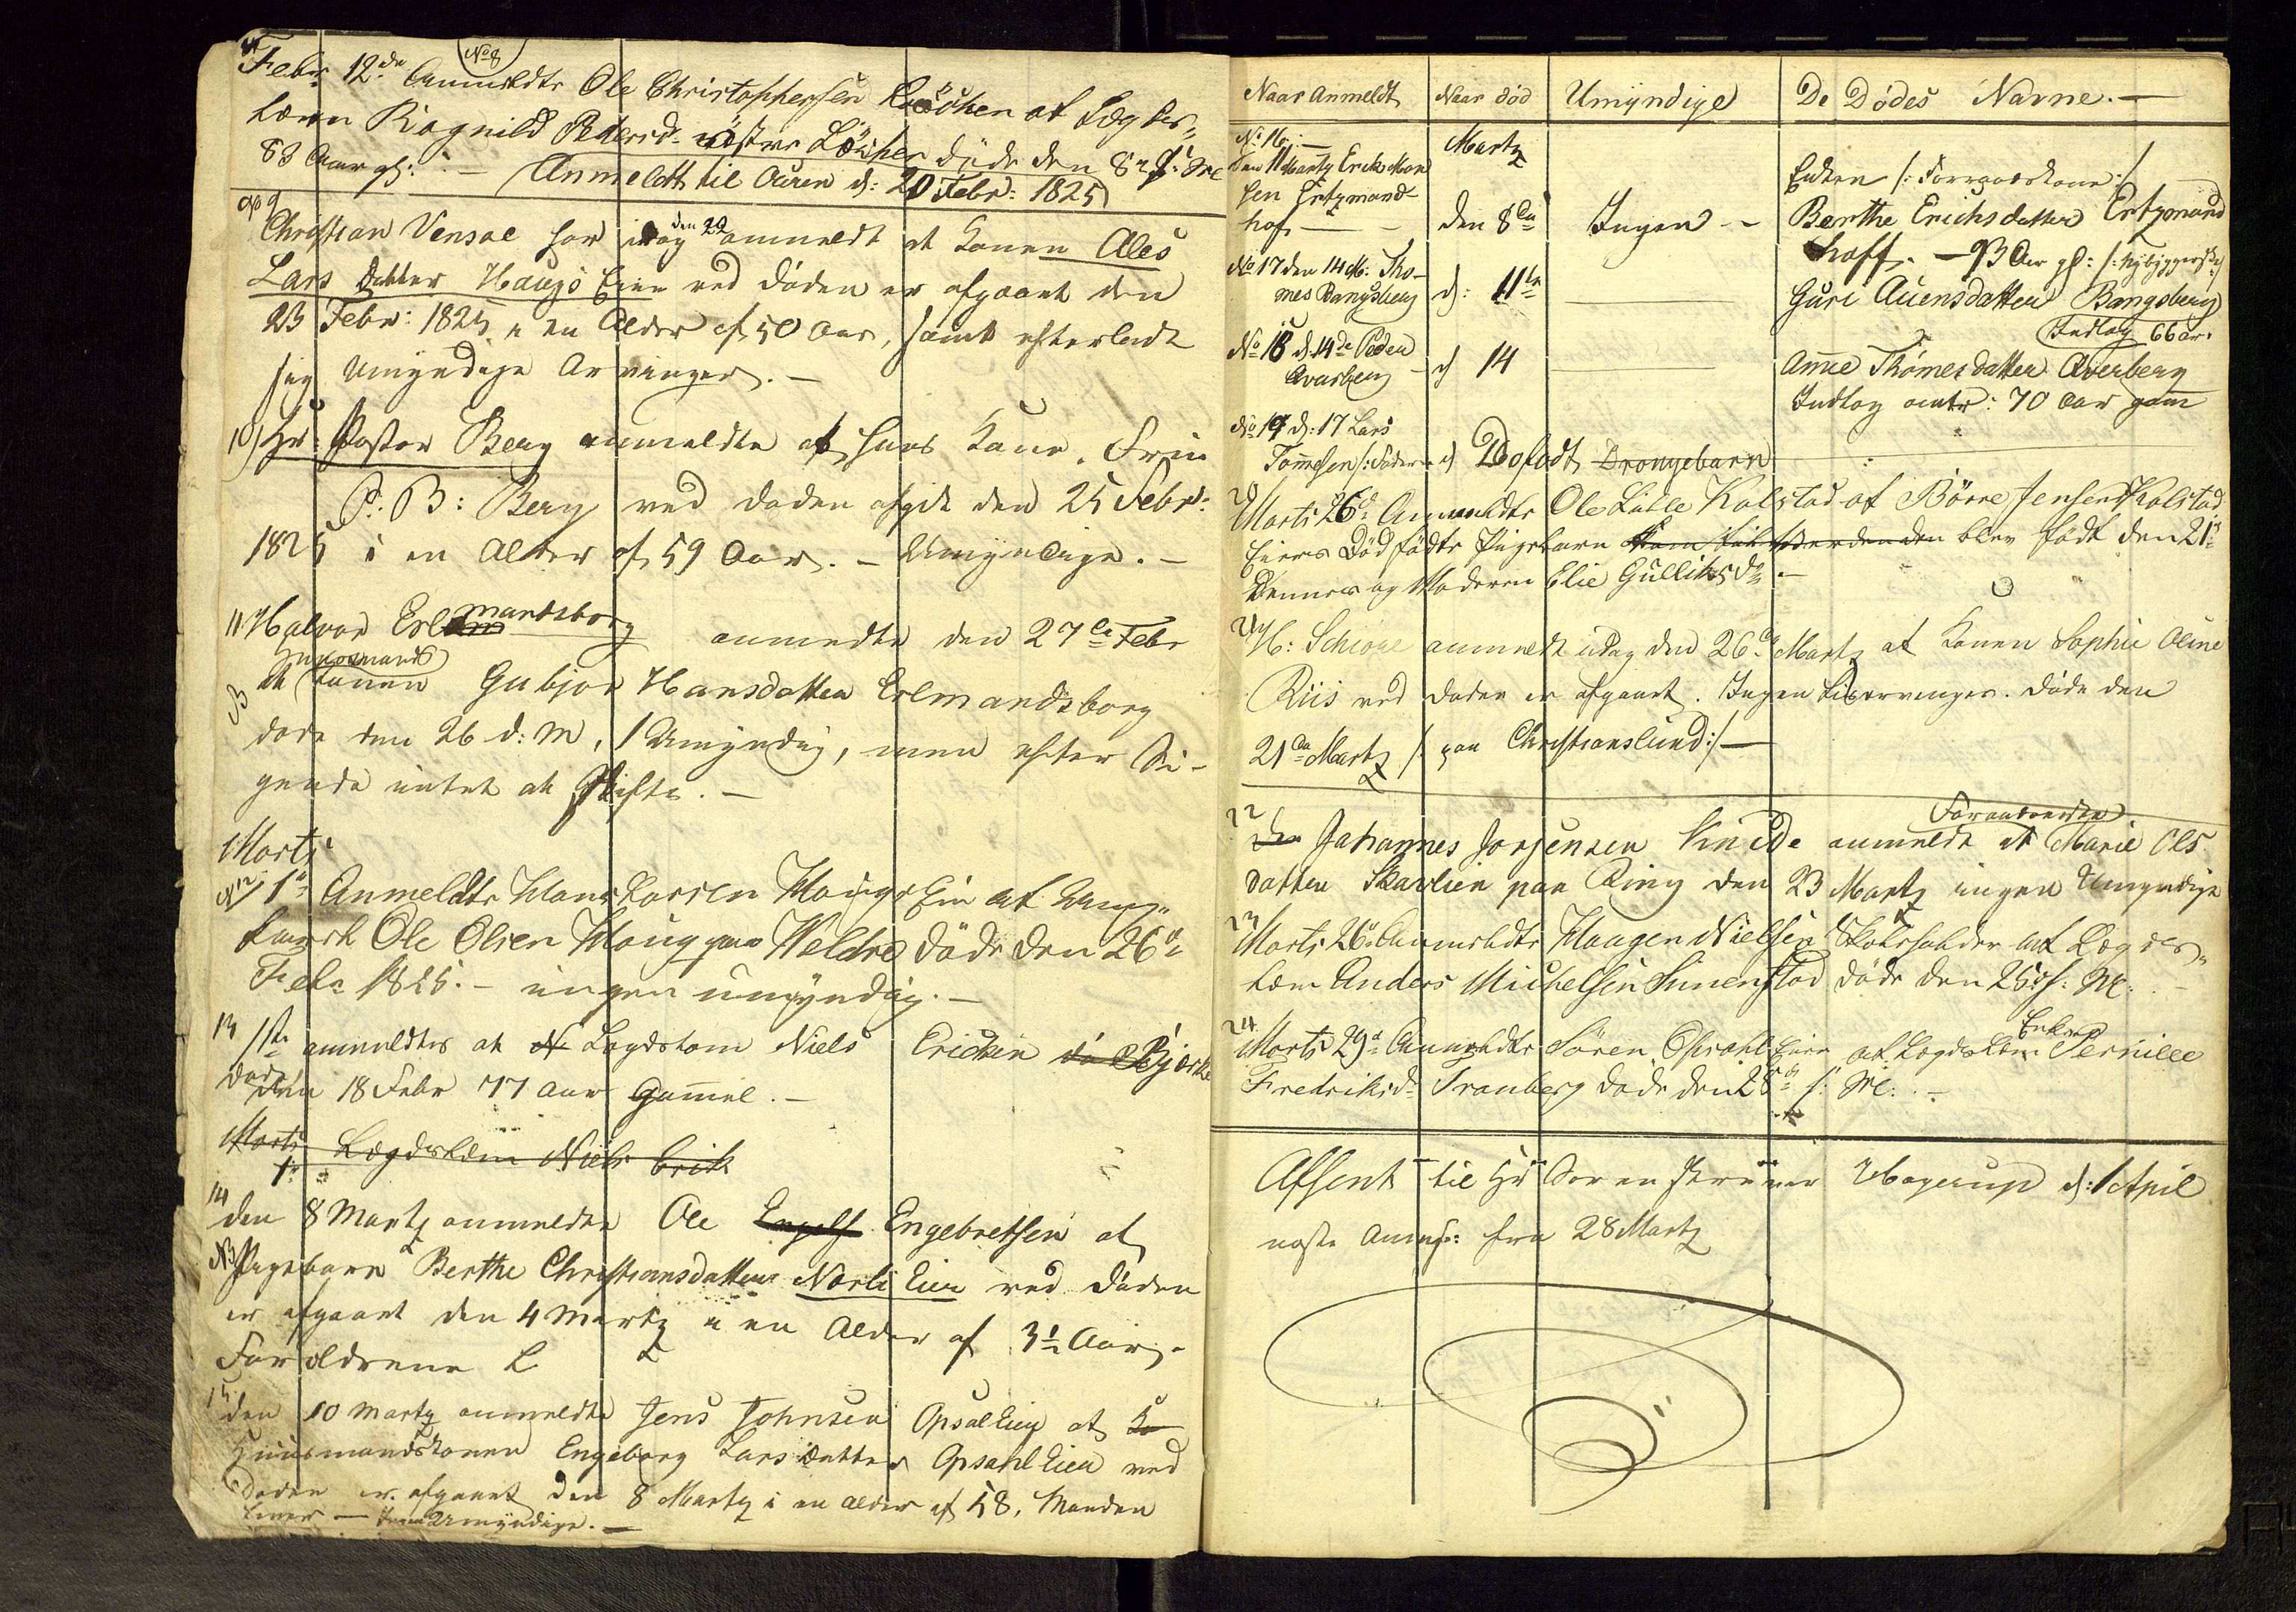 No 8
Febr 12de Anmeldte Ole Christophersen at Lægdes=
lem Ragnild Pedersd: døde den 8de d: M:
83 Aar gl: — Anmeldt til d: 20 Febr: 1825
No 9
Christian Vensoe har idag den 29 anmeldt at Konen Ales
Lars Datter Haugs Eier ved døden er afgaaet den
23 Febr: 1825 i en Alder af 50 Aar, samt efterladt
sig Umyndige Arvinger. —
10) Hr: Pastor Berg anmeldte at hans Kone, Fru
P: B: Berg ved døden afgik den 25 Febr:
1825 i en Alder af 59 Aar. — Umyndige. —
11 Halvor Erlmandsborg anmeldte den 27de Febr
Huusmands
at Konen Gubjor Hansdatter Erlmandsborg
døde den 26 d: M, 1 Umyndig, men efter Si-
gende intet at Skifte. —
Marts
No 12 1te Anmeldte Hans Larsen Hougs Eie at
Ole Olsen Houg paa Weldre døde den 26de
Febr 1825. — ingen umyndig. —
13 1ste anmeldtes at Lægdslem Niels Ericksen Bjerke
døde den 18 Febr 77 Aar Gammel. —
Marts 1te Lægdslem Niels Erik
14 den 8 Martz anmeldte Ole Engelf Engebretsen at
Pigebarn Berthe Christiansdatter Norli Eier ved døden
er afgaaet den 4 Martz i en Alder af 3½ Aar, -
Forældrene L
15 den 10 Martz anmeldte Jens Johnsen Opsal Eier at Ko
Huusmandskonen Engeborg Larsdatter Opsahl Eier ved
døden er afgaaet den 8 Martz i en alder af 58, Manden
lever — Umyndige. —
Naar Anmeldt Naar død Umyndige De Dødes Navne. —
No 16. — Martz
den 11 Martz Erick Mon
sen Ertzmands
hof — den 8de Ingen — Enken /: Forraadskone :/
Berthe Erichsdatter Ertzmands
hoff. — 93 Aar gl:
No 17 den 14 M: Tho-
mes Bangsberg d: 11te Guri Auensdatter Bangsberg
Indlag 66 Aar.
No 18 d. 14de Peder
Averberg d 14 Anne Thomesdatter Averberg
Indlag 70 Aar gam
No 19 d: 17 Lars
Tommesen /: Fader d Dødfødt Drengebarn
20
Marts 26de Anmeldte Ole Lille Kolstad at Børre Jensen Kolstad
Eiers Dødfødte Pigebarn blev født den 21de
Dennes og Moderen Elie Gulliksdr. —
21
H: Schioue anmeldt idag den 26de Martz at Konen Sophie Oline
Riis ved døden er afgaaet. Ingen Livsarvinger. døde den
21de Martz /: paa Christianslund :/ —
22
Den Johannes Jorgensen Kinde anmeldt at Marie Ols
datter Skarlien paa Ring den 23 Martz ingen Umyndige
23
Marts 26de Anmeldte Haagen Nielsen Skoleholder at Lægdes=
lem Anders Michelsen Simenstad døde den 25de d: M: —
24
Marts 29de Anmeldte Søren Opsahl Eier at Lægdslem Enken Pernille
Fredriksdr Tranberg døde den 28de d: M: —
Afsent til Hr Sorenskriver Hagerup d: 1 April
næste fra 28 Martz